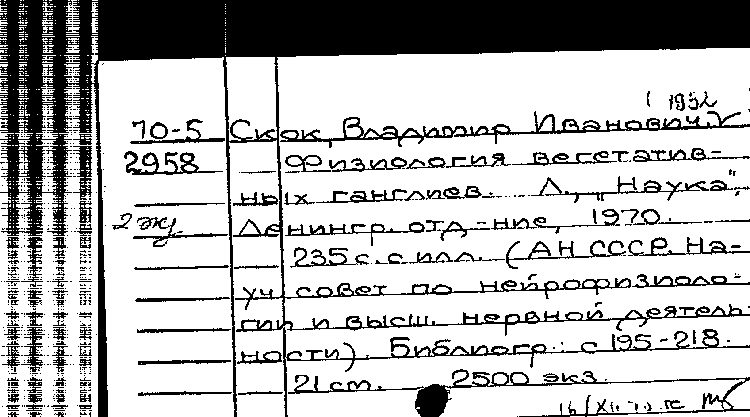 ( 1932
70-5 Скок, Владимир Иванович.
2958 Физиология вегетатив-
ных ганглиев. Л., „Наука",
2 экз. Ленингр. отд-ние, 1970.
235 с. с илл. (АН СССР. На-
уч. совет по нейрофизиоло-
гии и высш. нервной деятель-
ности). Библиогр.: с 195-218.
21 см. 2500 экз.
16/XII